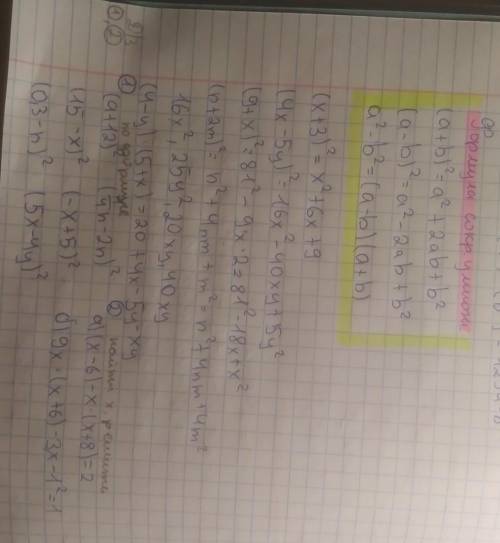 Формулы сокр умнож
(a+b)² = a² + 2ab + b²
(a-b)² = a² - 2ab + b²
a² - b² = (a-b)(a+b)
(x+3)² = x² + 6x + 9
(4x-5y)² = 16x² - 40xy + 5y²
(9+x)² = 81² - 9x·2 = 81² - 18x + x²
(n+2m)² = n² + 4nm + m² = n² + 4nm + 4m²
16x², 25y², 20xy, 40xy
(4-y)(5+x) = 20 + 4x - 5y - xy
① по формуле
(a+12)² (4n-2n)²
(15-x)² (-x+5)²
(0,3-n)² (5x4y)²
② найти x решить
а) (x-6)-x·(x+8)=2
б) 9x·(x+6)-3x-1²=1
Д/З
①,②